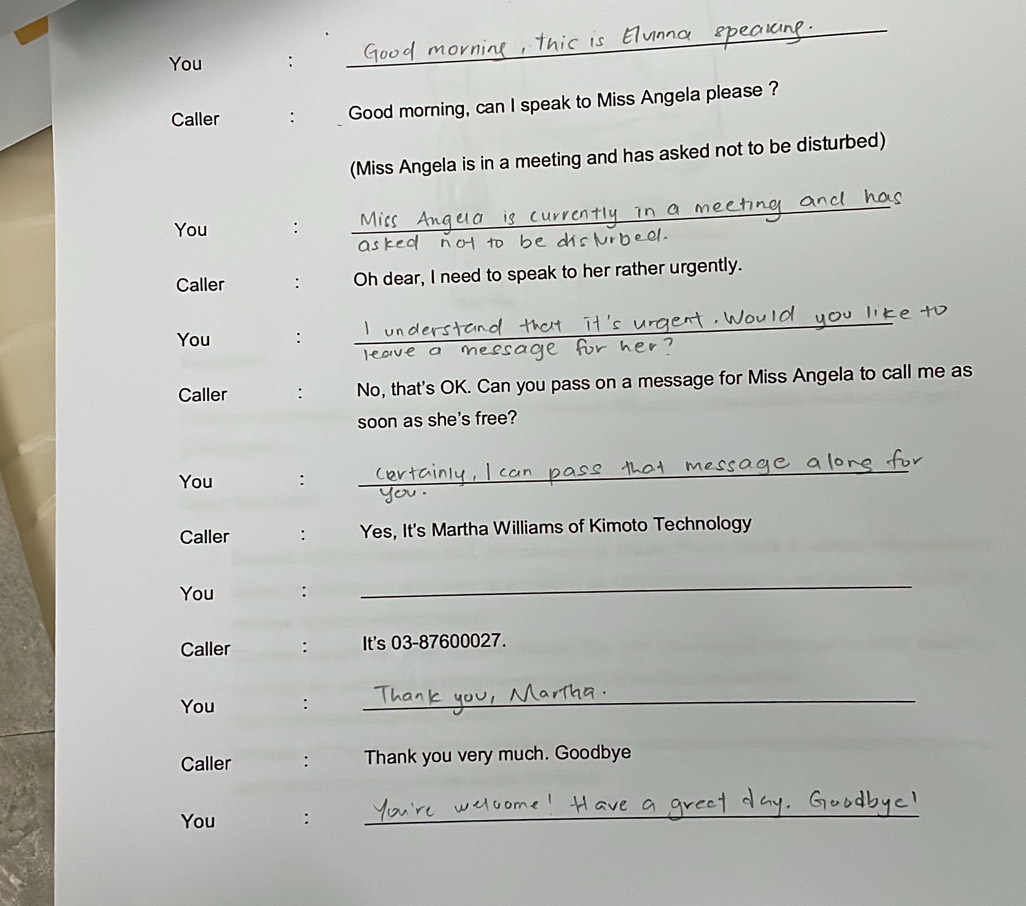 You : Good morning, this is Elvinna speaking.
Caller : Good morning, can I speak to Miss Angela please ?
(Miss Angela is in a meeting and has asked not to be disturbed)
You : Miss Angela is currently in a meeting and has
asked not to be disturbed.
Caller : Oh dear, I need to speak to her rather urgently.
You : I understand that it's urgent. Would you like to
leave a message for her?
Caller : No, that's OK. Can you pass on a message for Miss Angela to call me as
soon as she's free?
You : Certainly, I can pass that message along for
you.
Caller : Yes, It's Martha Williams of Kimoto Technology
You :
Caller : It's 03-87600027.
You : Thank you, Martha.
Caller : Thank you very much. Goodbye
You : You're welcome! Have a great day. Goodbye!